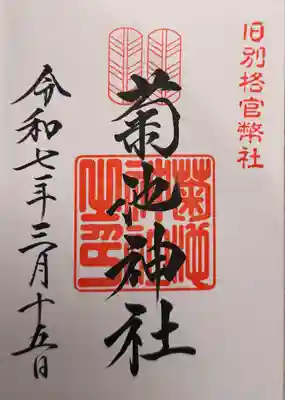 旧別格官幣社
菊池神社
菊池神社之印
令和七年三月十五日